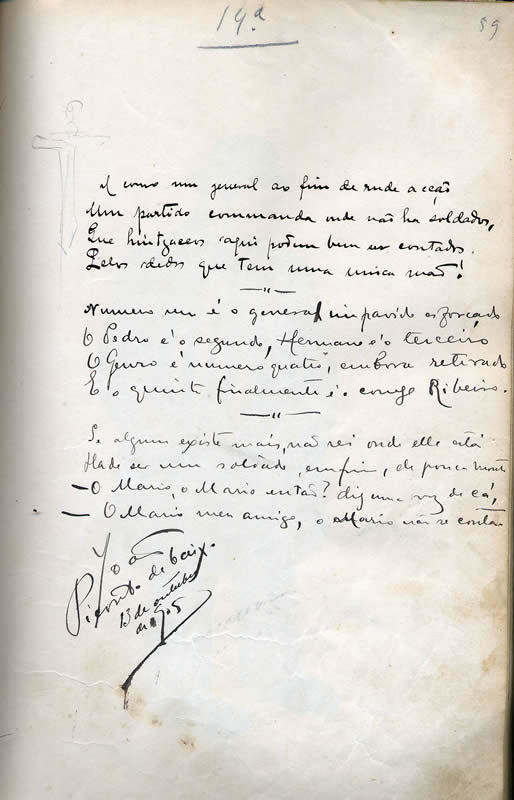 14ª
59
É como um general ao fim de rude acção
Um partido commanda onde não ha soldados,
Que hintzaceos aqui podem bem ser contados
Pelos dedos que tem uma unica mão!
Numero um é o general impavido esforçado
O Pedro é o segundo, Hermano é o terceiro
O Genro é numero quatro, embora retirado
E o quinto finalmente é o conego Ribeiro.
Se algum existe mais, não sei onde elle está
Hade ser um soldado, emfim, de pouca monta
— O Mario, o Mario então? diz uma voz de cá,
— O Mario meu amigo, o Mario não se conta
João
de
13 de outubro
de 905